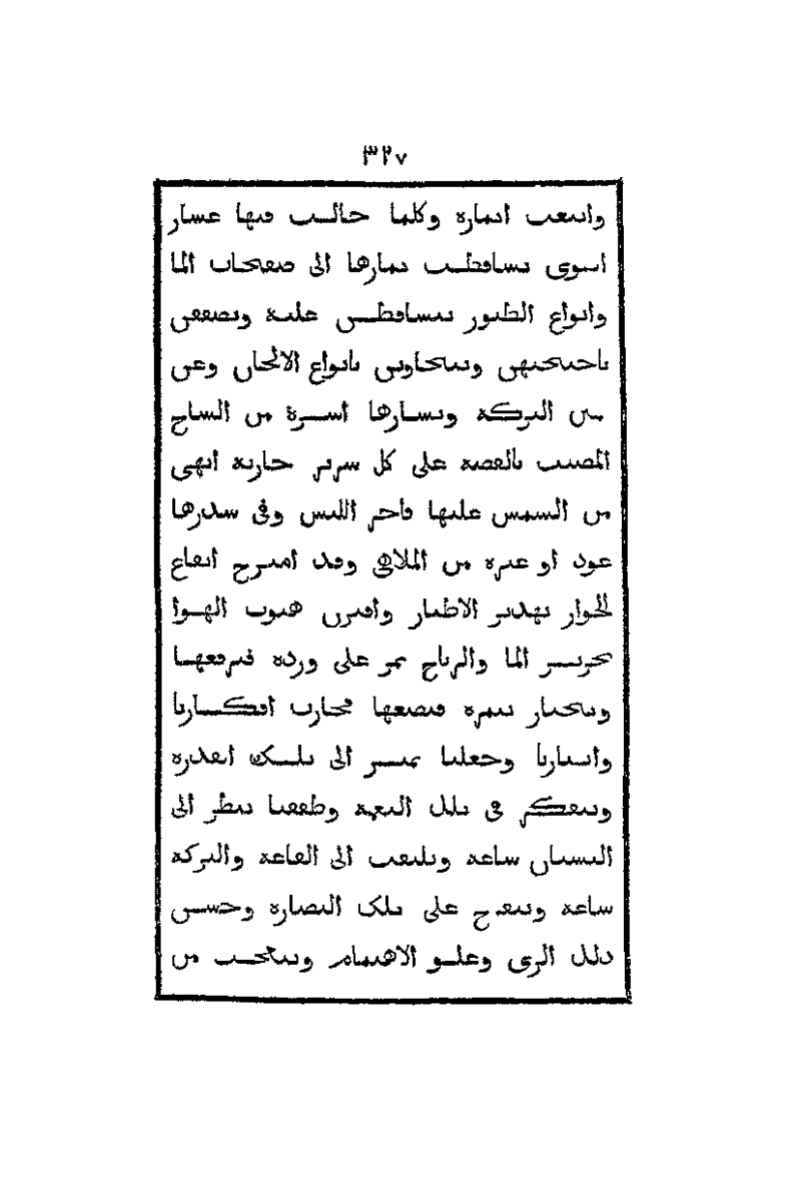 ٣٢٧
واينعت اثماره وكلما جالت فيها
تساقطت ثمارها الى صفحات الما
وانواع الطيور يتساقطن عليه ويصفقن
باجنحتهن ويتجاوبن بانواع الالحان وعن
البركة ويسارها اسرة من الساج
المصبب بالفضة على كل سرير جارية ابهى
من الشمس عليها فاخر اللبس وفى صدرها
عود او غيره من الملاهى وقد امتزج ايقاع
الجوار بهدير الاطيار واقترن هبوب الهوا
بخرير الما والرياح تمر على وردة فترفعها
وتجتاز بثمرة فتضعها فحارت افكارنا
وجعلنا نشير الى تلك القدرة
ونتفكر فى تلك النعمة وطفقنا ننظر الى
البستان ساعة ونلتفت الى القاعة والبركة
ساعة على تلك النضارة وحسن
ذلك الزى وعلو الاهتمام ونتعجب من